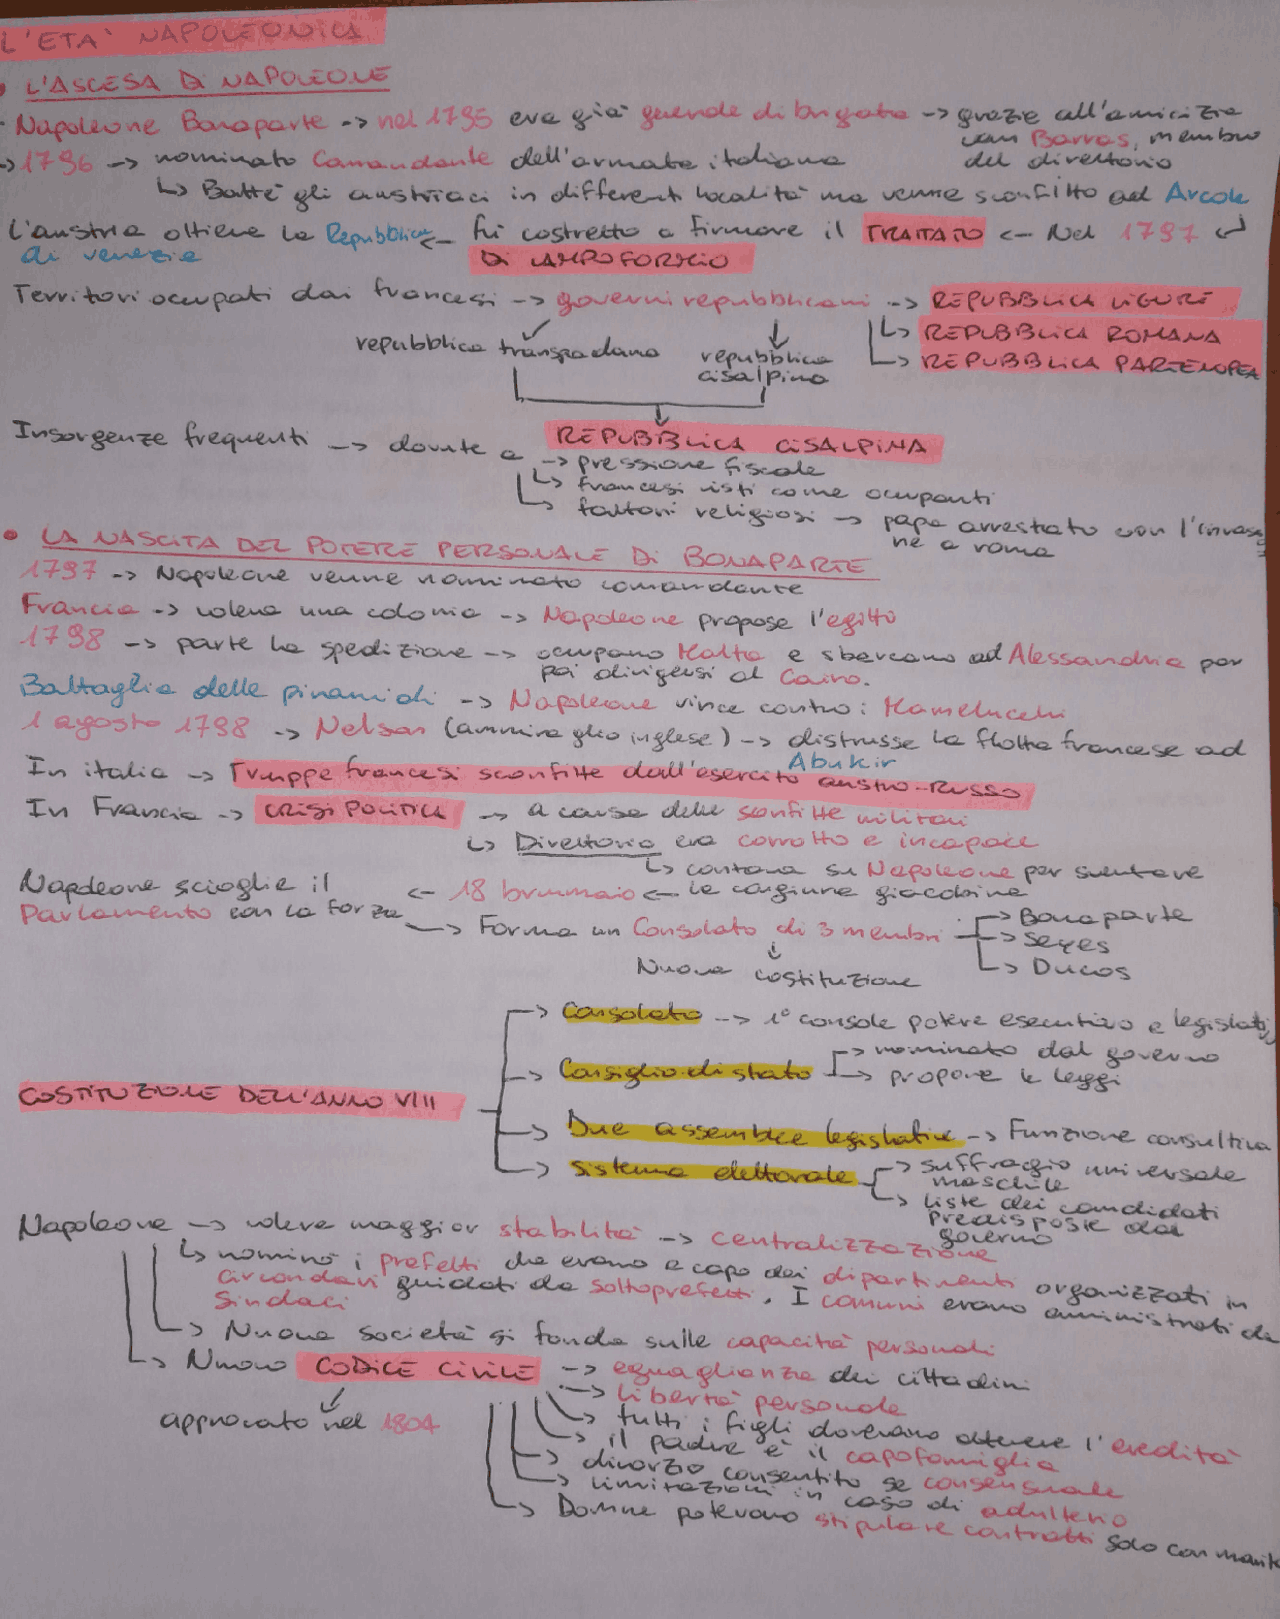 L'ETA' NAPOLEONICA
• L'ASCESA DI NAPOLEONE
- Napoleone Bonaparte -> nel 1795 era già generale di brigata -> grazie all'amicizia
con Barras, membro
del direttorio
-> 1796 -> nominato Comandante dell'armata italiana
↳ Battè gli austriaci in differenti località ma venne sconfitto ad Arcole
L'austria ottiene la Repubblica <- fu costretto a firmare il TRATTATO <- Nel 1797 ↵
di venezia DI CAMPOFORMIO
Territori occupati dai francesi -> governi repubblicani -> REPUBBLICA LIGURE
↳ REPUBBLICA ROMANA
↳ REPUBBLICA PARTENOPEA
repubblica transpadana repubblica
cisalpina
REPUBBLICA CISALPINA
Insorgenze frequenti -> dovute a -> pressione fiscale
↳ francesi visti come occupanti
↳ fattori religiosi -> papa arrestato con l'invasio
ne a roma
• LA NASCITA DEL POTERE PERSONALE DI BONAPARTE
1797 -> Napoleone venne nominato comandante
Francia -> voleva una colonia -> Napoleone propose l'egitto
1798 -> parte la spedizione -> occupano Malta e sbarcano ad Alessandria per
poi dirigersi al Cairo.
Battaglia delle piramidi -> Napoleone vince contro i Mamelucchi
1 agosto 1798 -> Nelson (ammiraglio inglese) -> distrusse la flotta francese ad
Abukir
In italia -> Truppe francesi sconfitte dall'esercito austro-russo
In Francia -> CRISI POLITICA -> a causa delle sconfitte militari
↳ Direttorio era corrotto e incapace
↳ contava su Napoleone per sventare
Napoleone scioglie il <- 18 brumaio <- le congiure giacobine
Parlamento con la forza
-> Forma un Consolato di 3 membri -> Bonaparte
-> Seyes
↳ Ducos
↓
Nuova costituzione
COSTITUZIONE DELL'ANNO VIII
-> Consolato -> 1° console potere esecutivo e legislativo
-> Consiglio di stato -> nominato dal governo
-> propone le leggi
-> Due assemblee legislative -> Funzione consultiva
-> sistema elettorale -> suffragio universale
maschile
-> liste dei candidati
predisposte dal
governo
Napoleone -> voleva maggior stabilità -> centralizzazione
↳ nominò i prefetti che erano a capo dei dipartimenti organizzati in
circondari guidati da sottoprefetti. I comuni erano amministrati da
Sindaci
↳ Nuova società si fonda sulle capacità personali
↳ Nuovo CODICE CIVILE -> eguaglianza dei cittadini
-> libertà personale
approvato nel 1804
-> tutti i figli dovevano ottenere l'eredità
-> il padre è il capofamiglia
-> divorzio consentito se consensuale
-> limitazioni in caso di adulterio
-> Donne potevano stipulare contratti solo con marito